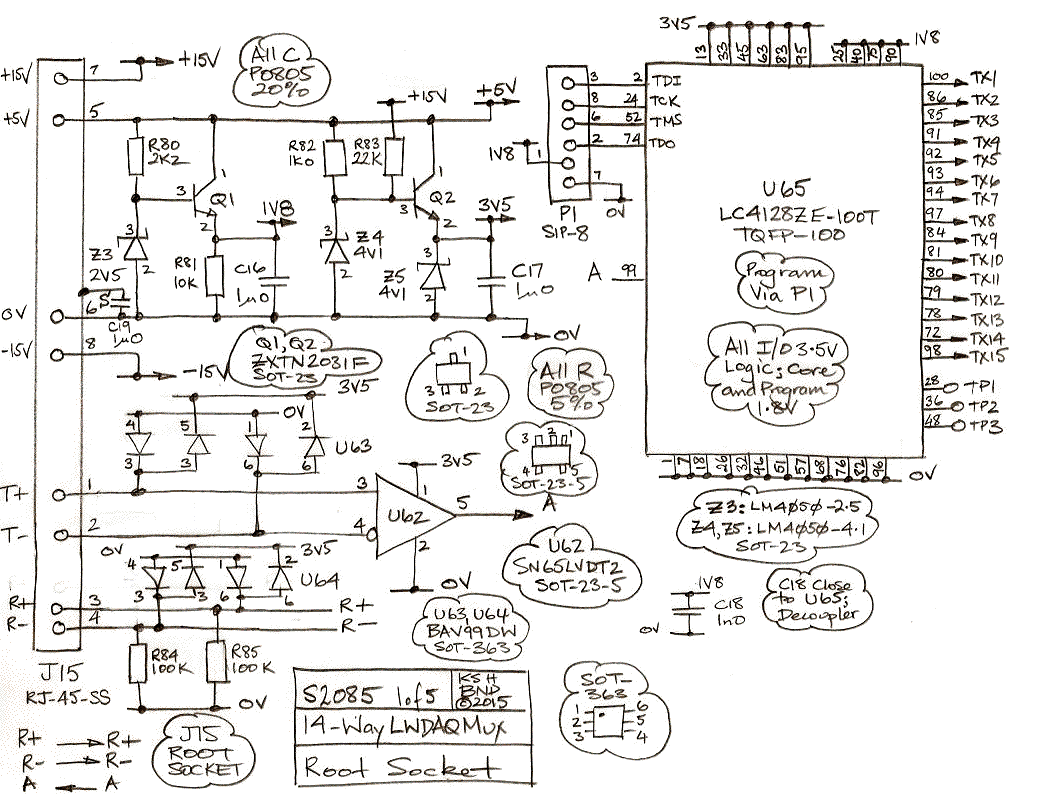 3V5
13 33 45 63 83 95
25 40 75 90
1V8
+15V 7 +15V
All C
P0805
20%
+5V 5
+15V
+5V
R80
2K2
R82
1K0
R83
22K
3 Q1
2
1V8
3 Q2
2
3V5
Z3
2V5
3
2
R81
10K
C16
1μ0
Z4
4V1
3
2
Z5
4V1
3
2
C17
1μ0
0V 6
C19
1μ0
0V
-15V 8
-15V
1V8
3
8
6
2
1
7
P1
SIP-8
0V
2 TDI
24 TCK
52 TMS
74 TDO
A 99
U65
LC4128ZE-100T
TQFP-100
Program
Via P1
All I/O 3.5V
Logic; Core
and Program
1.8V
100 TX1
86 TX2
85 TX3
91 TX4
92 TX5
93 TX6
94 TX7
97 TX8
84 TX9
81 TX10
80 TX11
79 TX12
78 TX13
72 TX14
98 TX15
28 TP1
36 TP2
48 TP3
1 7 18 26 32 46 51 57 68 76 82 96
0V
Q1, Q2:
ZXTN2031F
SOT-23
1
3 2
SOT-23
All R
P0805
5%
3V5
0V
4 5 1 2
3 3 6 6
U63
3 2 1
4 5
SOT-23-5
T+ 1
T- 2
3V5
3 1
4 2
U62
5
A
0V
U62
SN65LVDT2
SOT-23-5
0V 3V5
4 5 1 2
3 3 6 6
U64
R+ 3 R+
R- 4 R-
J15
RJ-45-SS
R84
100K
R85
100K
0V
U63, U64
BAV99DW
SOT-363
Z3: LM4050-2.5
Z4, Z5: LM4050-4.1
SOT-23
1V8
C18
1n0
0V
C18 Close
to U65;
Decoupler
SOT-
363
1 6
2 5
3 4
R+ R+
R- R-
A A
J15
ROOT
SOCKET
S2085 1 of 5
KSH
BND
©2015
14-Way LWDAQ Mux
Root Socket